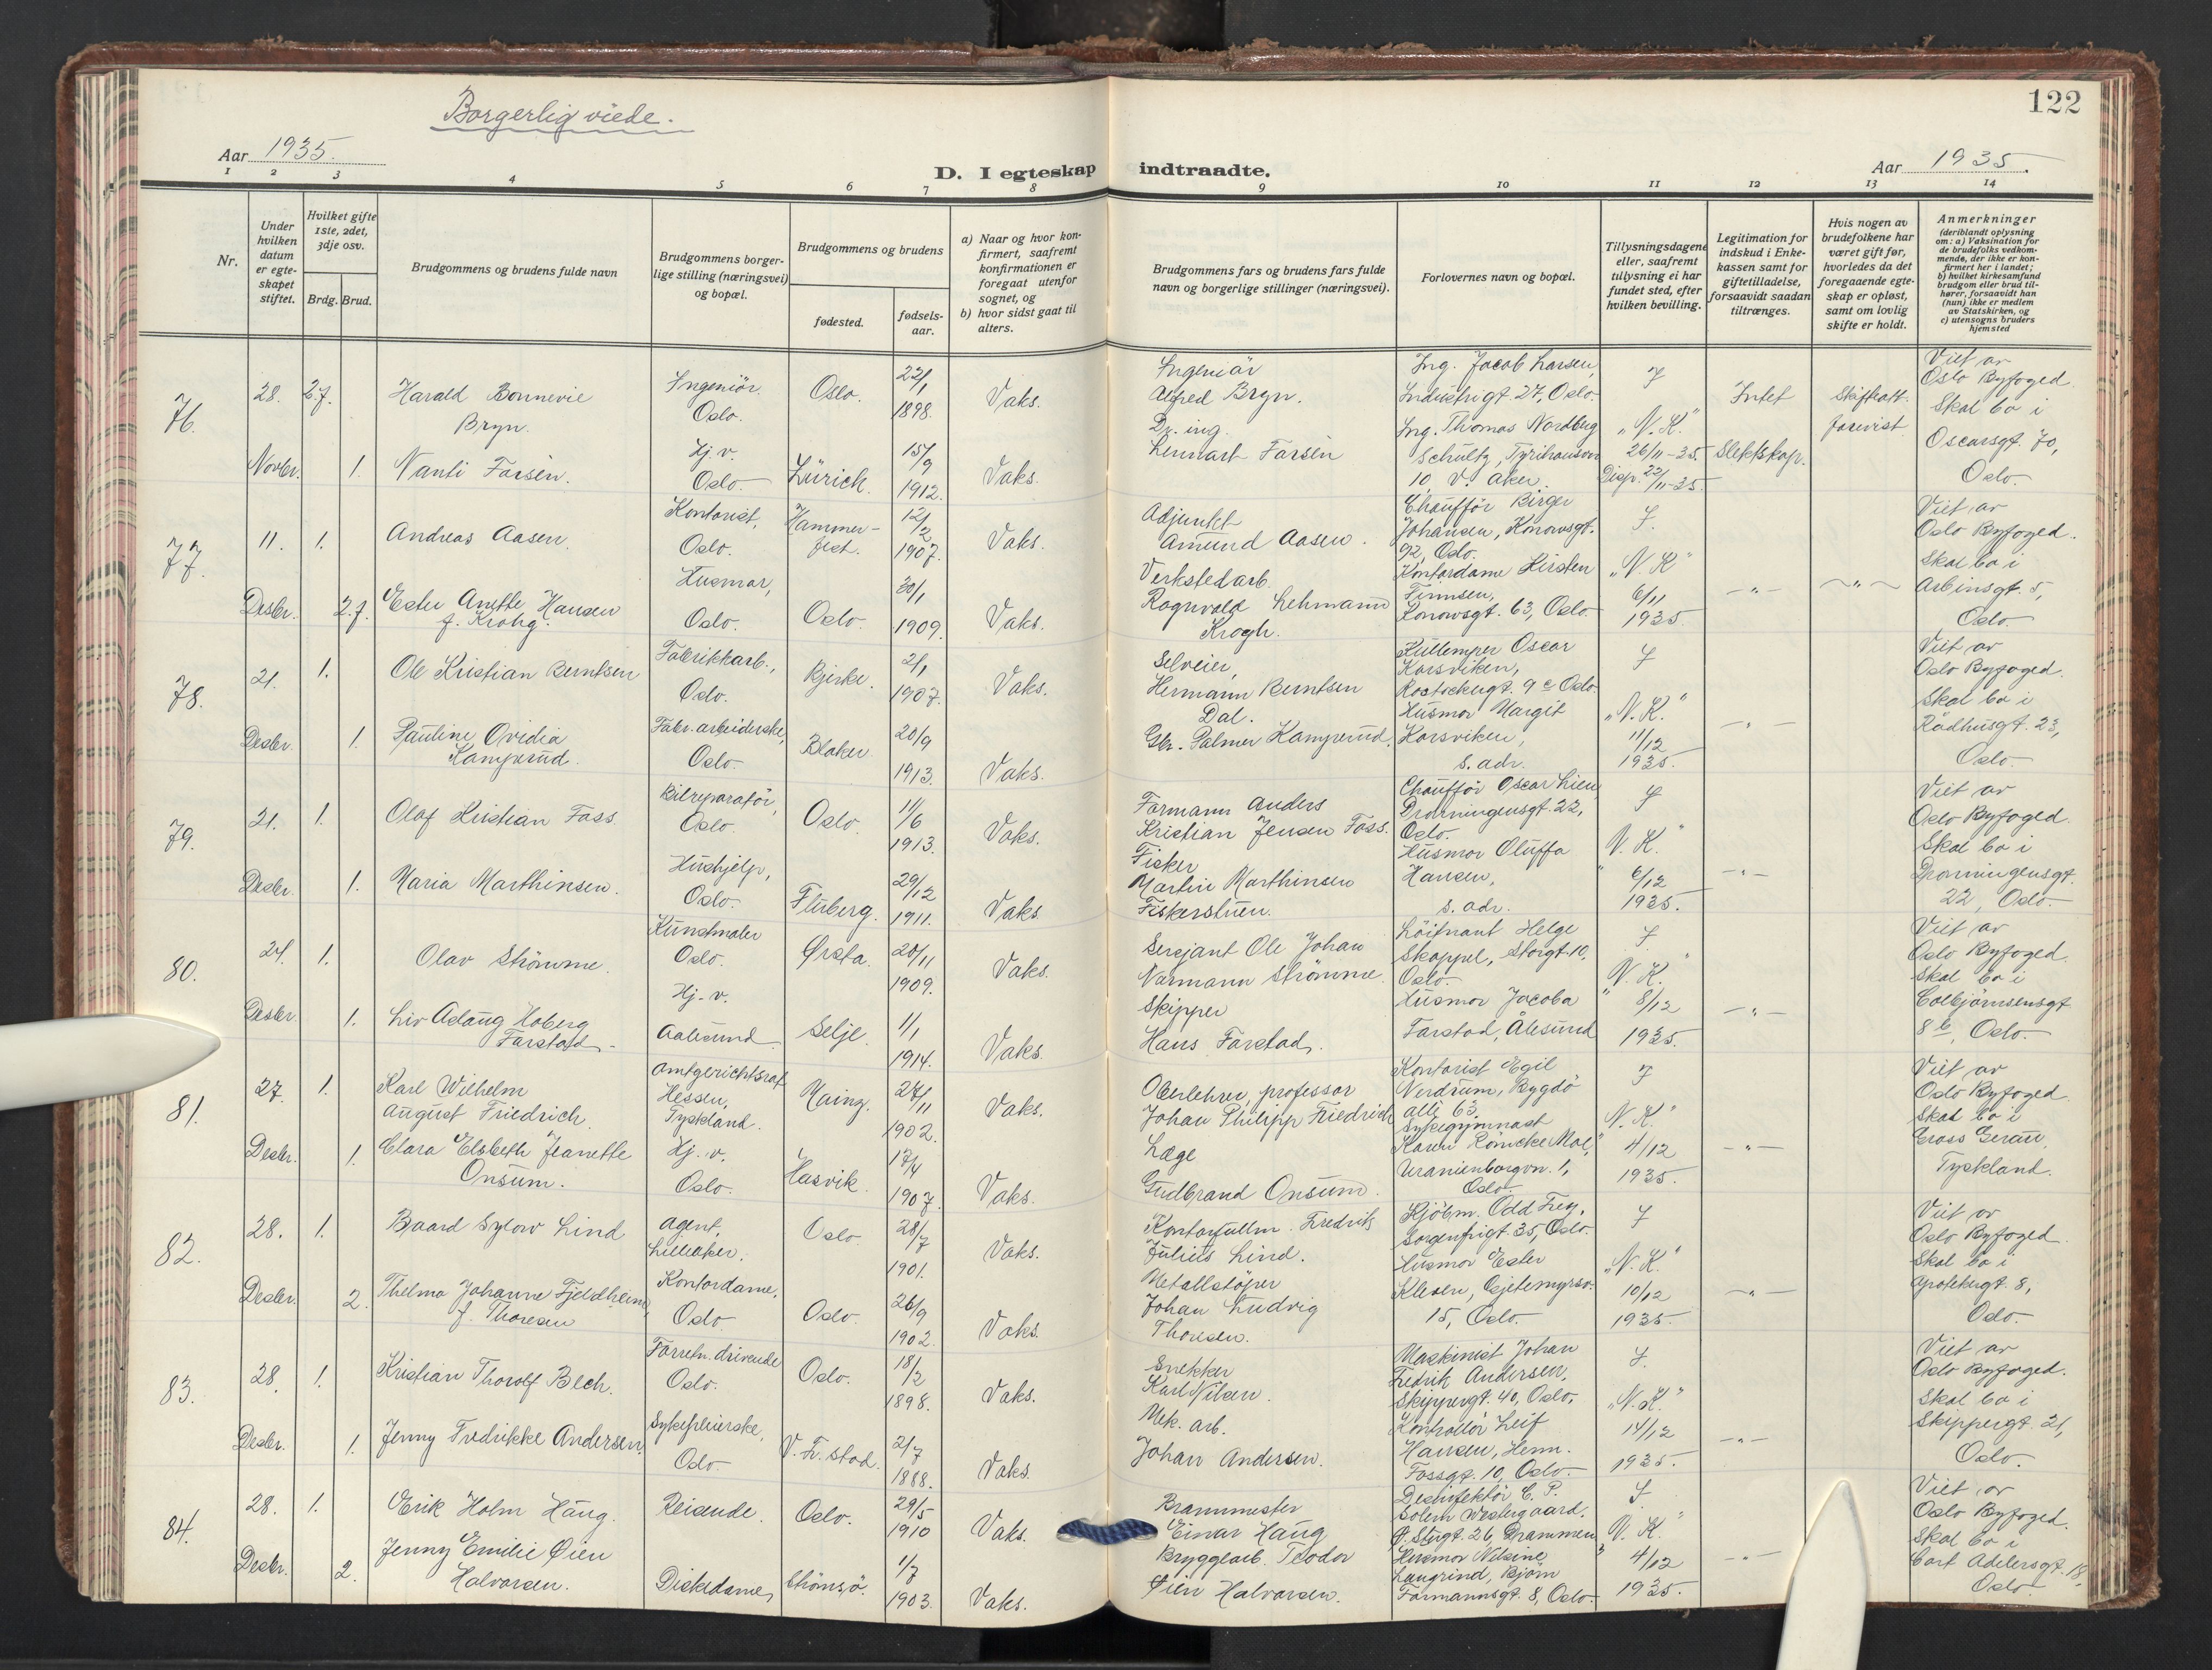 122
Borgerlig viede.
Aar 1935.
D. I egteskap indtraadte.
Aar 1935.
1 2 3 4 5 6 7 8 9 10 11 12 13 14
Nr.
Under
hvilken
datum
er egte-
skapet
stiftet.
Hvilket gifte
1ste, 2det,
3dje osv.
Brdg. Brud.
Brudgommens og brudens fulde navn
Brudgommens borger-
lige stilling (næringsvei)
og bopæl.
Brudgommens og brudens
fødested.
fødsels-
aar.
a) Naar og hvor kon-
firmert, saafremt
konfirmationen er
foregaat utenfor
sognet, og
b) hvor sidst gaat til
alters.
Brudgommens fars og brudens fars fulde
navn og borgerlige stillinger (næringsvei).
Forlovernes navn og bopæl.
Tillysningsdagene
eller, saafremt
tillysning ei har
fundet sted, efter
hvilken bevilling.
Legitimation for
indskud i Enke-
kassen samt for
giftetilladelse,
forsaavidt saadan
tiltrænges.
Hvis nogen av
brudefolkene har
været gift før,
hvorledes da det
foregaaende egte-
skap er opløst,
samt om lovlig
skifte er holdt.
Anmerkninger
(deriblandt oplysning
om: a) Vaksination for
de brudefolks vedkom-
mende, der ikke er kon-
firmert her i landet;
b) hvilket kirkesamfund
brudgom eller brud til-
hører, forsaavidt han
(hun) ikke er medlem
av Statskirken, og
c) utensogns bruders
hjemsted
76.
28.
Novbr.
2.f.
1.
Harald Bonnevie
Bryn.
Nanti Forsèn.
Ingeniör.
Oslo.
Hj. v.
Oslo.
Oslo.
Zürich.
22/1
1898.
15/9
1912.
Vaks.
Vaks.
Ingeniör
Alfred Bryn.
Dr. ing.
Lennart Forsèn
Ing. Jacob Larsen,
Industrigt. 27, Oslo.
Ing. Thomas Nordberg
Schultz, Tyrihansvn
10, V. Aker.
"N. K."
26/11-35.
Disp. 22/11-35.
Intet
Slektskap.
Skifteatt.
forevist
Viet av
Oslo Byfoged.
Skal bo i
Oscarsgt. 70,
Oslo.
77.
11.
Desbr.
1.
2.f.
Andreas Aasen.
Ester Anette Hansen
f. Krohg.
Kontorist,
Oslo.
Husmor,
Oslo.
Hammer-
fest.
Oslo.
12/2
1907.
30/1
1909.
Vaks.
Vaks.
Adjunkt
Amund Aasen.
Verkstedarb.
Rognvald Lehmann
Krogh.
Chaufför Birger
Johansen, Konowsgt.
92, Oslo.
Kontordame Kirsten
Finnsen,
Konowsgt. 63, Oslo.
"N. K."
6/11
1935.
— " —
— " —
Viet av
Oslo Byfoged.
Skal bo i
Arbinsgt. 5,
Oslo
78.
21.
Desbr.
1.
1.
Ole Kristian Berntsen
Pauline Ovidia
Kamperud.
Fabrikkarb.,
Oslo.
Fabr. arbeiderske,
Oslo.
Bjerke.
Blaker.
2/1
1907.
20/9
1913.
Vaks.
Vaks.
Selveier,
Hermann Berntsen
Dal.
Gbr. Palmer Kamperud.
Kullemper Oscar
Korsviken,
Rostockergt. 9 c Oslo.
Husmor Margit
Korsviken,
s. adr.
"N. K."
11/12
1935.
— " —
Viet av
Oslo Byfoged.
Skal bo i
Rådhusgt. 23,
Oslo.
79.
21.
Desbr.
1.
1.
Olaf Kristian Foss
Maria Marthinsen.
Bilreparatör,
Oslo.
Hushjelp,
Oslo.
Oslo.
Fluberg.
11/6
1913.
29/12
1911.
Vaks.
Vaks.
Formann Anders
Kristian Jensen Foss.
Fisker
Martin Marthinsen
Fiskerstuen.
Chaufför Oscar Lien
Dronningensgt. 22,
Oslo.
Husmor Oluffa
Hansen,
s. adr.
"N. K."
6/12
1935.
— " —
Viet av
Oslo Byfoged.
Skal bo i
Dronningensgt.
22, Oslo.
80.
24.
Desbr.
1.
1.
Olav Strömme.
Liv Adaug Hoberg
Farstad.
Kunstmaler
Oslo.
Hj. v.
Aalesund
Ørsta.
Selje.
20/11
1909.
1/1
1914.
Vaks.
Vaks.
Sersjant Ole Johan
Normann Strömme.
Skipper
Hans Farstad.
Löitnant Helge
Skappel, Storgt. 10,
Oslo.
Husmor Jacoba
Farstad, Ålesund
"N. K."
8/12
1935.
— " —
Viet av
Oslo Byfoged.
Skal bo i
Colbjörnsensgt
8 b, Oslo.
81.
27.
Desbr.
1.
1.
Karl Wilhelm
August Friedrich.
Clara Elsbeth Jeanette
Onsum.
Amtgerichtsrat
Hessen,
Tyskland.
Hj. v.
Oslo.
Mainz.
Hasvik.
27/11
1902.
17/4
1907.
Vaks.
Vaks.
Oberlehrer, professor
Johan Philipp Friedrich
Læge
Gudbrand Onsum.
Kontorist Egil
Nerdrum, Bygdö
allé 63.
Sykegymnast
Karen Römcke Moe,
Uranienborgvn. 1,
Oslo
"N. K."
4/12
1935.
— " —
Viet av
Oslo Byfoged.
Skal bo i
Gross Gerau,
Tyskland.
82.
28.
Desbr.
1.
2.
Baard Sylow Lind
Thelma Johanne Fjeldheim,
f. Thoresen
Agent,
Lilleaker.
Kontordame,
Oslo
Oslo
Oslo.
28/7
1901.
26/9
1902.
Vaks.
Vaks.
Kontorfullm. Fredrik
Julius Lind.
Metallstöper
Johan Ludvig
Thoresen.
Kjöbm. Odd Frey,
Sorgenfrigt. 35, Oslo.
Husmor Ester
Kleven, Gjetemyrsv.
15, Oslo.
"N. K."
10/12
1935.
— " —
Viet av
Oslo Byfoged.
Skal bo i
Apotekergt. 8,
Oslo.
83.
28.
Desbr.
1.
1.
Kristian Thorolf Bech.
Jenny Fredrikke Andersen.
Forretn. drivende
Oslo.
Sykepleierske,
Oslo
Oslo.
V. Fr. stad.
18/2
1898.
2/7
1888.
Vaks.
Vaks.
Snekker
Karl Nilsen.
Mek. arb.
Johan Andersen.
Maskinist Johan
Fredrik Andersen,
Skippergt. 40, Oslo.
Kontrollör Leif
Hansen, Herm.
Fossgt. 10, Oslo.
"N. K."
14/12
1935.
— " —
Viet av
Oslo Byfoged.
Skal bo i
Skippergt. 21,
Oslo.
84.
28.
Desbr.
1.
2.
Erik Holm Haug.
Jenny Emilie Øien
Halvorsen.
Reisende.
Diskedame,
Oslo.
Strömsö.
29/5
1910
1/7
1903.
Vaks.
Vaks.
Brannmester
Einar Haug
Bryggearb. Teodor
Øien Halvorsen.
Desinfektör C. P.
Solem Westergaard,
26, Drammen
Husmor Nilsine
Langrind, Bjørn
Farmannsgt. 8, Oslo.
"N. K."
4/12
1935.
— " —
Viet av
Oslo Byfoged.
Skal bo i
Cort Adelersgt. 18,
Oslo.